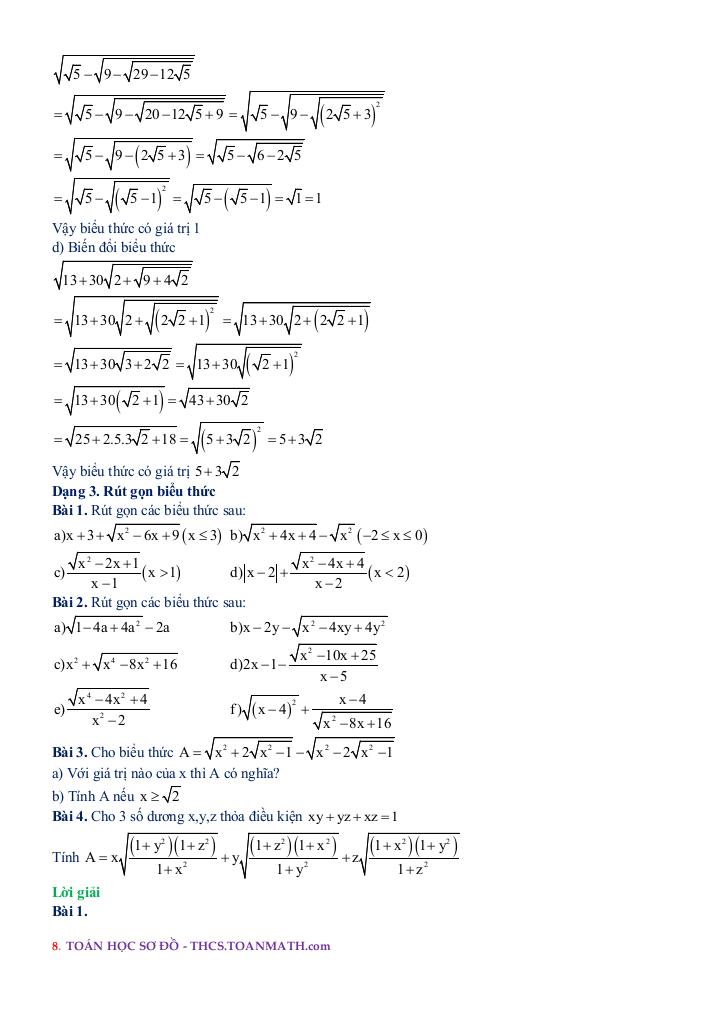 √(√5 − √(9 − √(29 − 12√5)))
= √(√5 − √(9 − √(20 − 12√5 + 9))) = √(√5 − √(9 − √((2√5 + 3)²)))
= √(√5 − √(9 − (2√5 + 3))) = √(√5 − √(6 − 2√5))
= √(√5 − √((√5 − 1)²)) = √(√5 − (√5 − 1)) = √1 = 1
Vậy biểu thức có giá trị 1
d) Biến đổi biểu thức
√(13 + 30√(2 + √(9 + 4√2)))
= √(13 + 30√(2 + √((2√2 + 1)²))) = √(13 + 30√(2 + (2√2 + 1)))
= √(13 + 30√(3 + 2√2)) = √(13 + 30√((√2 + 1)²))
= √(13 + 30(√2 + 1)) = √(43 + 30√2)
= √(25 + 2.5.3√2 + 18) = √((5 + 3√2)²) = 5 + 3√2
Vậy biểu thức có giá trị 5 + 3√2
Dạng 3. Rút gọn biểu thức
Bài 1. Rút gọn các biểu thức sau:
a) x + 3 + √(x² − 6x + 9) (x ≤ 3) b) √(x² + 4x + 4) − √(x²) (−2 ≤ x ≤ 0)
c) √(x² − 2x + 1)/(x − 1) (x > 1) d) |x − 2| + √(x² − 4x + 4)/(x − 2) (x < 2)
Bài 2. Rút gọn các biểu thức sau:
a) √(1 − 4a + 4a²) − 2a b) x − 2y − √(x² − 4xy + 4y²)
c) x² + √(x⁴ − 8x² + 16) d) 2x − 1 − √(x² − 10x + 25)/(x − 5)
e) √(x⁴ − 4x² + 4)/(x² − 2) f) √((x − 4)²) + (x − 4)/√(x² − 8x + 16)
Bài 3. Cho biểu thức A = √(x² + 2√(x² − 1)) − √(x² − 2√(x² − 1))
a) Với giá trị nào của x thì A có nghĩa?
b) Tính A nếu x ≥ √2
Bài 4. Cho 3 số dương x,y,z thỏa điều kiện xy + yz + xz = 1
Tính A = x√((1 + y²)(1 + z²)/(1 + x²)) + y√((1 + z²)(1 + x²)/(1 + y²)) + z√((1 + x²)(1 + y²)/(1 + z²))
Lời giải
Bài 1.
8. TOÁN HỌC SƠ ĐỒ - THCS.TOANMATH.com